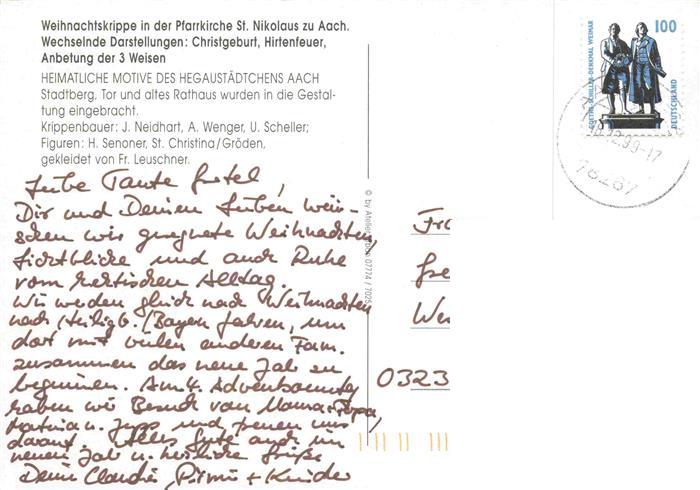 Weihnachtskrippe in der Pfarrkirche St. Nikolaus zu Aach.
Wechselnde Darstellungen: Christgeburt, Hirtenfeuer,
Anbetung der 3 Weisen
HEIMATLICHE MOTIVE DES HEGAUSTÄDTCHENS AACH
Stadtberg, Tor und altes Rathaus wurden in die Gestal-
tung eingebracht.
Krippenbauer: J. Neidhart, A. Wenger, U. Scheller;
Figuren: H. Senoner, St. Christina/Gröden,
gekleidet von Fr. Leuschner.
Liebe Tante Gretel,
Dir und Deinen Lieben wün-
schen wir gesegnete Weihnachten,
Lichtblicke und auch Ruhe
vom hektischen Alltag.
Wir werden gleich nach Weihnachten
nach Heiligb./Bayern fahren, um
dort mit vielen anderen Fam.
zusammen das neue Jahr zu
beginnen. Am 4. Adventsonntag
haben wir Besuch von Mama + Papa,
und freuen uns
darauf. Alles Gute auch im
neuen Jahr u. herzliche Grüße
Deine Claudia, + Kinder
© by Atelier 07774 / 7025
100
GOETHE-SCHILLER-DENKMAL WEIMAR
DEUTSCHLAND
12.99-17
78267
Fra
Gre
We
0323